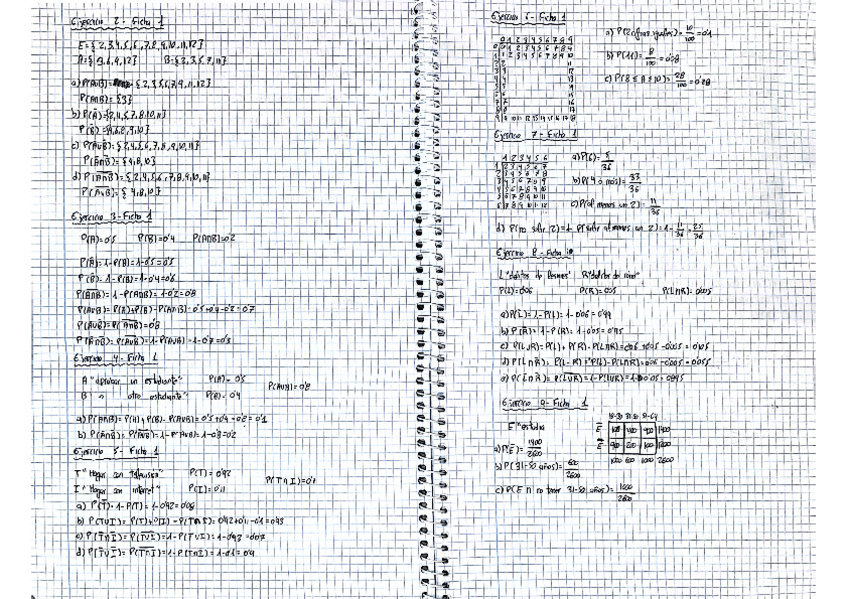 Ejercicio 2 - Ficha 1
E={2,3,4,5,6,7,8,9,10,11,12}
A={3,6,9,12} B={2,3,5,7,11}
a) P(A∪B)= {2,3,5,6,7,9,11,12}
P(A∩B)= {3}
b) P(Ā)={2,4,5,7,8,10,11}
P(B̄)={4,6,8,9,10}
c) P(A∪B̄)=
P(Ā∩B̄)= {4,8,10}
d) P(A̅∩̅B̅)={2,4,5,6,7,8,9,10,11}
P(A̅∪̅B̅)= {4,8,10}
Ejercicio 3 - Ficha 1
P(A)=0'5 P(B)=0'4 P(A∩B)=0'2
P(Ā)=1-0'5=0'5
P(B̄)=1-P(B)=1-0'4=0'6
P(A̅∩̅B̅)=1-P(A∩B)=1-0'2=0'8
P(A∪B)=P(A)+P(B)-P(A∩B)=0'5+0'4-0'2=0'7
P(Ā∪B̄)=P(A̅∩̅B̅)=0'8
P(Ā∩B̄)=P(A̅∪̅B̅)=1-P(A∪B)=1-0'7=0'3
Ejercicio 4 - Ficha 1
A "aprobar un estudiante" P(A)=0'5
P(A∪B)=0'8
B " " otro estudiante" P(B)=0'4
a) P(A∩B)=P(A)+P(B)-P(A∪B)=0'5+0'4-0'8=0'1
b) P(Ā∩B̄)=P(A̅∪̅B̅)=1-P(A∪B)=1-0'8=0'2
Ejercicio 5 - Ficha 1
T "Hogar con televisión" P(T)=0'92
P(T∩I)=0'1
I "Hogar con internet" P(I)=0'11
a) P(T̄)=1-P(T)=1-0'92=0'08
b) P(T∪I)=P(T)+P(I)-P(T∩I)=0'92+0'11-0'1=0'93
c) P(T̄∩Ī)=P(T̅∪̅I̅)=1-P(T∪I)=1-0'93=0'07
d) P(T̄∪Ī)=P(T̅∩̅I̅)=1-P(T∩I)=1-0'1=0'9
Ejercicio 6 - Ficha 1
0 1 2 3 4 5 6 7 8 9
a) P(2 cifras iguales)=10/100=0'1
b) P(11)=8/100=0'08
c) P(8≤A≤10)=28/100=0'28
Ejercicio 7 - Ficha 1
1 2 3 4 5 6
1 2 3 4 5 6 7
2 3 4 5 6 7 8
3 4 5 6 7 8 9
4 5 6 7 8 9 10
5 6 7 8 9 10 11
6 7 8 9 10 11 12
a) P(6)=5/36
b) P(4 o más)=33/36
c) P(al menos un 2)=11/36
d) P(no salir 2)=1-P(salir al menos un 2)=1-11/36=25/36
Ejercicio 8 - Ficha 1
P(L)=0'06 P(R)=0'05 P(L∩R)=0'005
a) P(L̄)=1-P(L)=1-0'06=0'94
b) P(R̄)=1-P(R)=1-0'05=0'95
c) P(L∪R)=P(L)+P(R)-P(L∩R)=0'06+0'05-0'005=
d) P(L∩R̄)=P(L-R)=P(L)-P(L∩R)=0'06-0'005=0'055
Ejercicio 9 - Ficha 1
E "estudia
a) P(E)=1400/2600
b) P(31-50 años)=600/2600
c) P(E ∩ no tener 31-50 años)=1000/2600